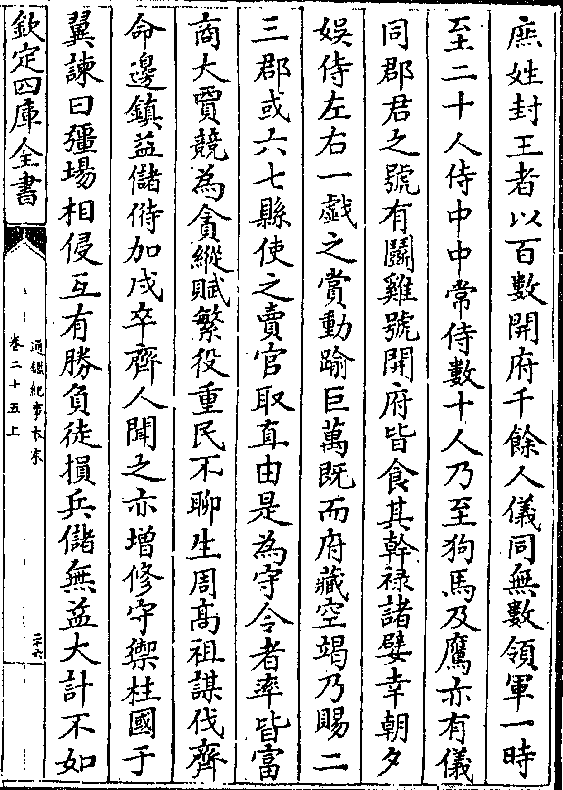 庶姓封王者以百數開府千餘人儀同無數領軍一時
至二十人侍中中常侍數十人乃至狗馬及鷹亦有儀
同郡君之號有鬭雞號開府皆食其幹禄諸嬖幸朝夕
娱侍左右一戲之賞動踰巨萬既而府藏空竭乃賜二
三郡或六七縣使之賣官取直由是為守令者率皆富
商大賈競為貪縱賦繁役重民不聊生周髙祖謀伐齊
命邊鎮益儲偫加戍卒齊人聞之亦增修守禦柱國于
翼諫曰疆埸相侵互有勝負徒損兵儲無益大計不如
欽定四庫全書
通鑑紀事本末
卷二十五上
二十六